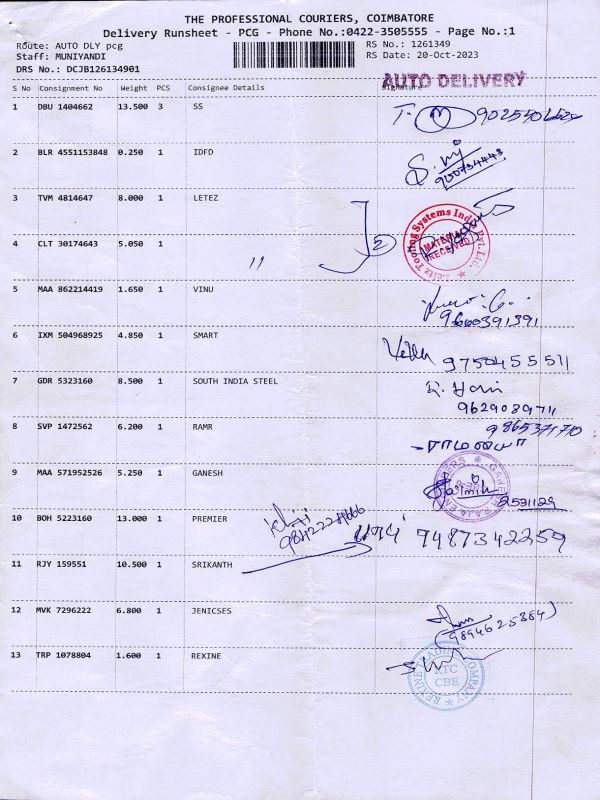 THE PROFESSIONAL COURIERS, COIMBATORE
Delivery Runsheet - PCG - Phone No.:0422-3505555 - Page No.:1
Route: AUTO DLY pcg RS No.: 1261349
Staff: MUNIYANDI RS Date: 20-Oct-2023
DRS No.: DCJB126134901
AUTO DELIVERY
S No Consignment No Weight PCS Consignee Details Signature
1 DBU 1404662 13.500 3 SS
2 BLR 4551153848 0.250 1 IDFD
3 TVM 4814647 8.000 1 LETEZ
MATERIAL RECEIVED
4 CLT 30174643 5.050 1 "
5 MAA 862214419 1.650 1 VINU
9660391391
6 IXM 504968925 4.850 1 SMART
9750455511
7 GDR 5323160 8.500 1 SOUTH INDIA STEEL
9629089711
8 SVP 1472562 6.200 1 RAMR
9865371710
9 MAA 571952526 5.250 1 GANESH
2531129
10 BOH 5223160 13.000 1 PREMIER
7487342259
11 RJY 159551 10.500 1 SRIKANTH
12 MVK 7296222 6.800 1 JENICSES
(9894625384)
13 TRP 1078804 1.600 1 REXINE
RTC
CBE